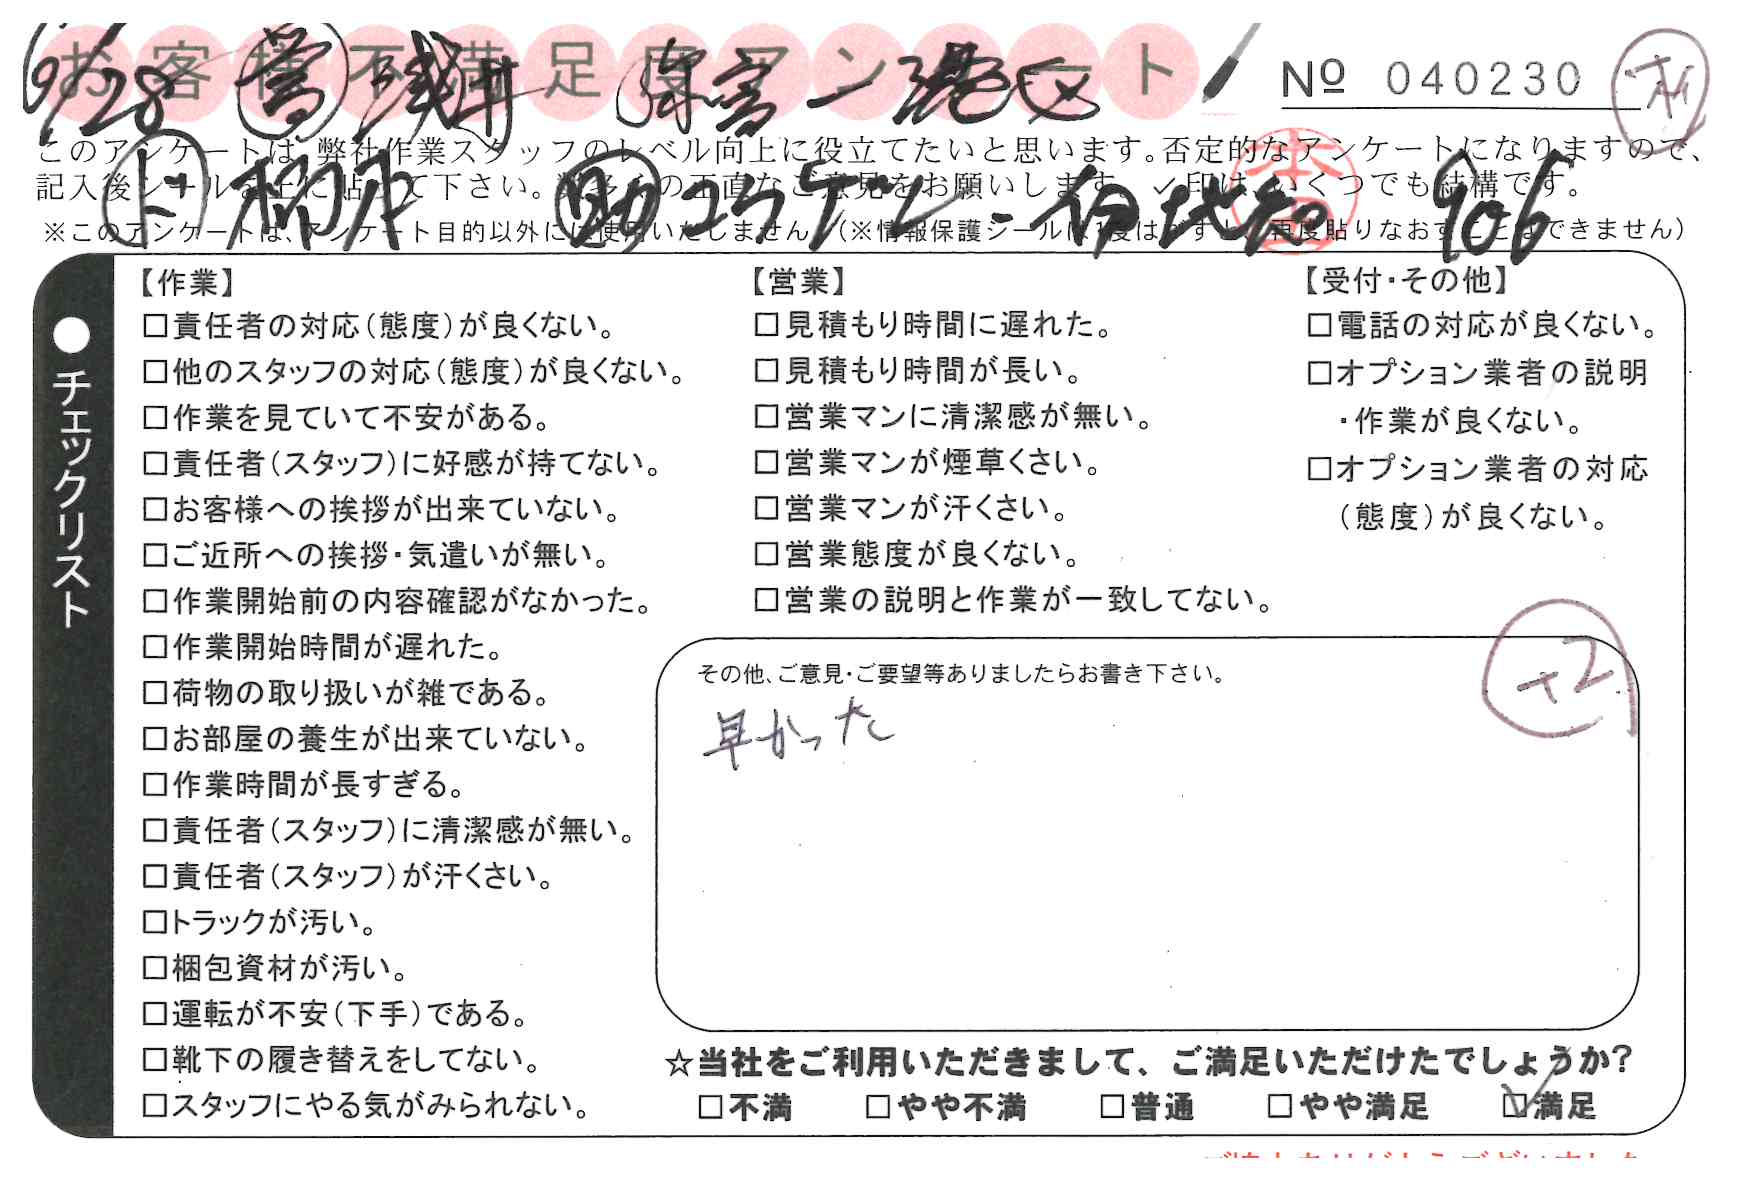 お客様不満足度アンケート
№ 040230
9/28 営 浅井
このアンケートは、弊社作業スタッフのレベル向上に役立てたいと思います。否定的なアンケートになりますので、
記入後シールを上に貼って下さい。数多くの正直なご意見をお願いします。✓印は、いくつでも結構です。
906
※このアンケートは、アンケート目的以外には使用いたしません。(※情報保護シールは1度はがすと、再度貼りなおすことはできません)
●チェックリスト
【作業】
□責任者の対応(態度)が良くない。
□他のスタッフの対応(態度)が良くない。
□作業を見ていて不安がある。
□責任者(スタッフ)に好感が持てない。
□お客様への挨拶が出来ていない。
□ご近所への挨拶・気遣いが無い。
□作業開始前の内容確認がなかった。
□作業開始時間が遅れた。
□荷物の取り扱いが雑である。
□お部屋の養生が出来ていない。
□作業時間が長すぎる。
□責任者(スタッフ)に清潔感が無い。
□責任者(スタッフ)が汗くさい。
□トラックが汚い。
□梱包資材が汚い。
□運転が不安(下手)である。
□靴下の履き替えをしてない。
□スタッフにやる気がみられない。
【営業】
□見積もり時間に遅れた。
□見積もり時間が長い。
□営業マンに清潔感が無い。
□営業マンが煙草くさい。
□営業マンが汗くさい。
□営業態度が良くない。
□営業の説明と作業が一致してない。
【受付・その他】
□電話の対応が良くない。
□オプション業者の説明
・作業が良くない。
□オプション業者の対応
(態度)が良くない。
その他、ご意見・ご要望等ありましたらお書き下さい。
+2
早かった
☆当社をご利用いただきまして、ご満足いただけたでしょうか?
□不満 □やや不満 □普通 □やや満足 ☑満足